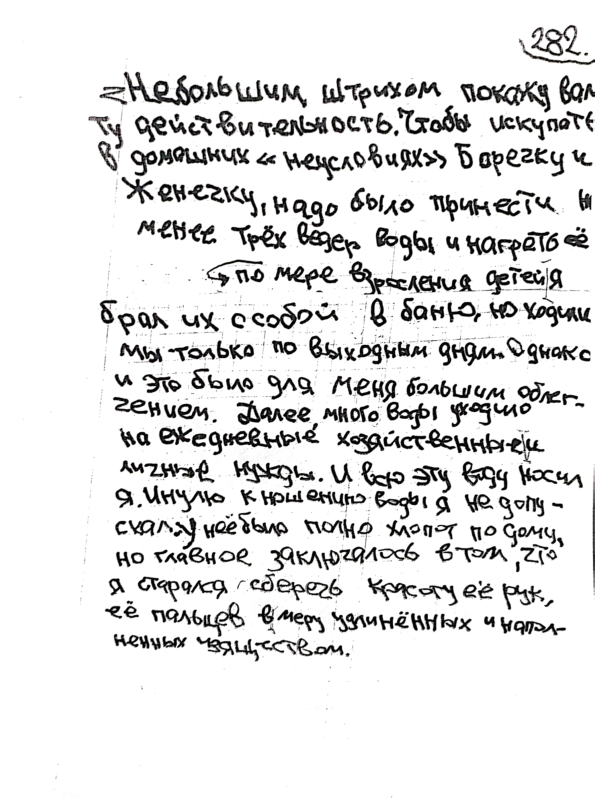 282.
Небольшим штрихом покажу вам
ту действительность. Чтобы искупать
в домашних «неусловиях» Боречку и
Женечку, надо было принести не
менее трёх ведер воды и нагреть её
по мере взросления детей я
брал их с собой в баню, но ходили
мы только по выходным дням. Однако
и это было для меня большим облег-
чением. Далее, много воды уходило
на ежедневные хозяйственные и
личные нужды. И всю эту воду носил
я. Инулю к ношению воды я не допу-
скал. У неё было полно хлопот по дому,
но главное заключалось в том, что
я старался сберечь красоту её рук,
её пальцев в меру удлинённых и напол-
ненных изяществом.